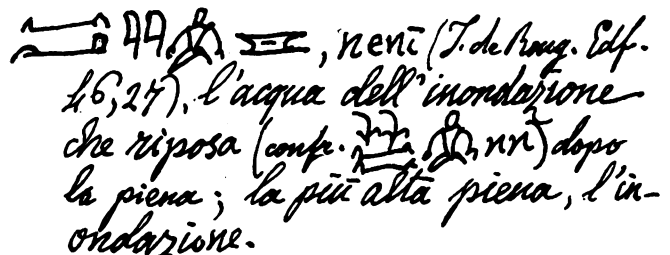 , nenī (J. de Roug. Edf.
46,27), l'acqua dell'inondazione
che riposa (confr. dopo
la piena; la più alta piena, l'in-
ondazione.